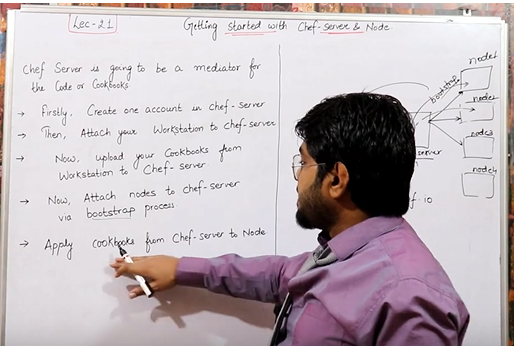 Lec-21
Getting started with Chef-server & Node
Chef Server is going to be a mediator for
the Code or Cookbooks
→ Firstly, Create one account in chef-server
→ Then, Attach your Workstation to chef-server
→ Now, upload your Cookbooks from
Workstation to Chef-server
→ Now, Attach nodes to chef-server
via bootstrap process.
→ Apply cookbooks from Chef-server to Node
bootstrap
node1
node2
node3
node4
server
10